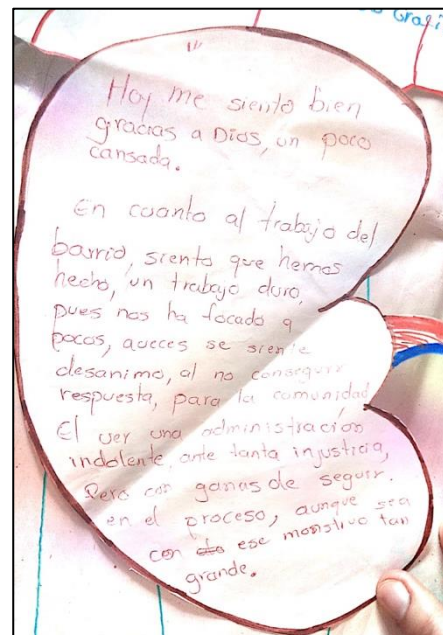 Hoy me siento bien
gracias a Dios, un poco
cansada.
En cuanto al trabajo del
barrio, siento que hemos
hecho, un trabajo duro,
pues nos ha tocado a
pocos, aveces se siente
desanimo, al no conseguir
respuesta, para la comunidad
El ver una administración
indolente, ante tanta injusticia,
Pero con ganas de seguir.
en el proceso, aunque sea
con ese monstruo tan
grande.